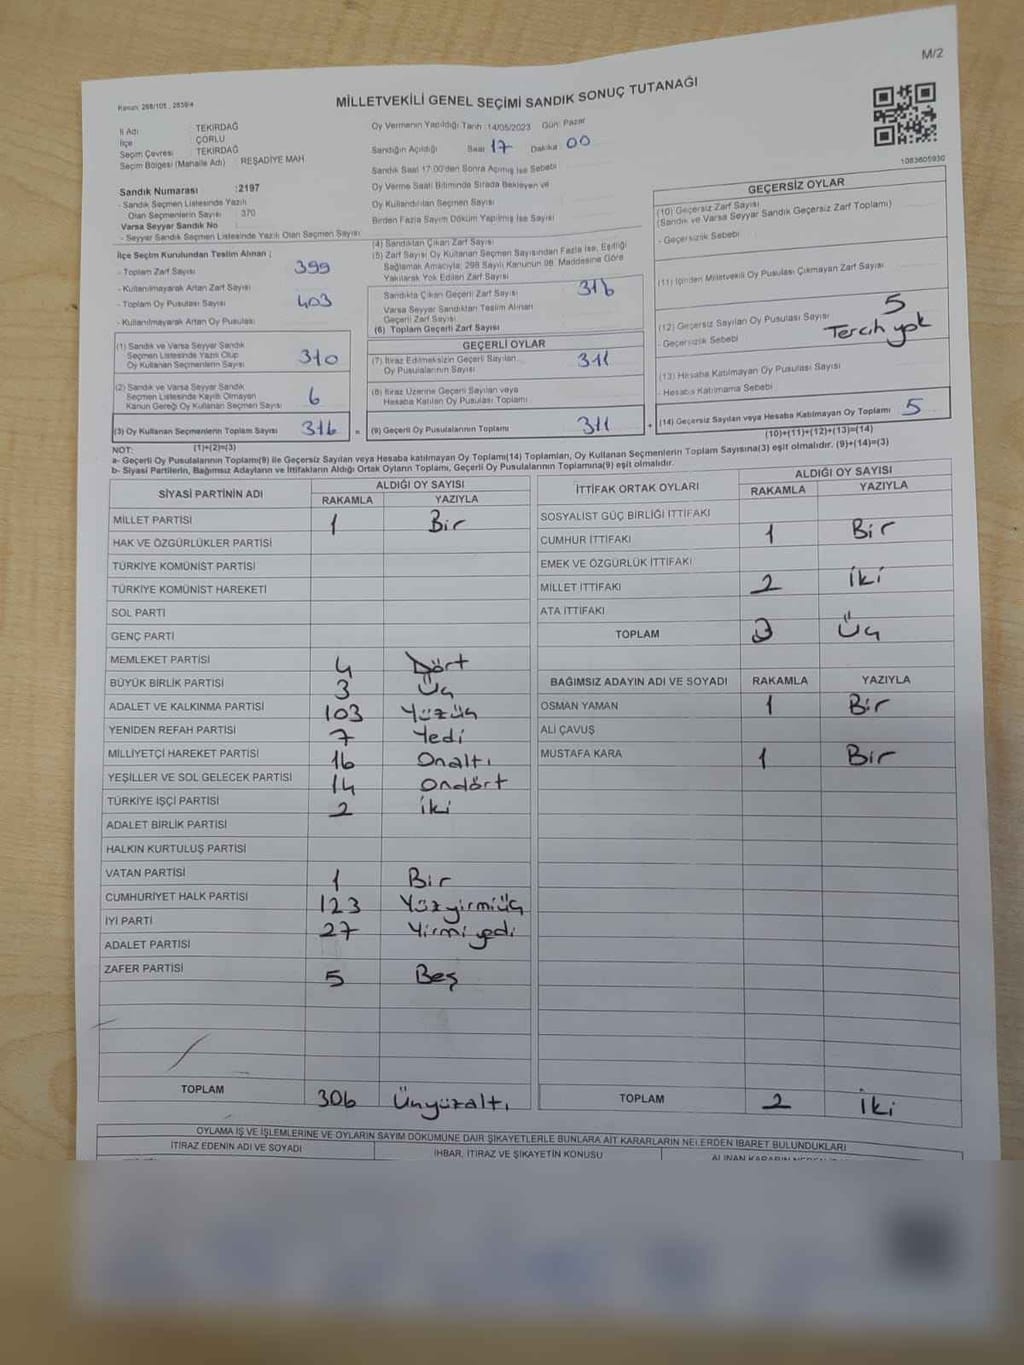 M/2
Kanun: 298/105 , 2839/4
MİLLETVEKİLİ GENEL SEÇİMİ SANDIK SONUÇ TUTANAĞI
İl Adı : TEKİRDAĞ
İlçe : ÇORLU
Seçim Çevresi : TEKİRDAĞ
Seçim Bölgesi (Mahalle Adı) : REŞADİYE MAH.
Sandık Numarası :2197
- Sandık Seçmen Listesinde Yazılı
Olan Seçmenlerin Sayısı : 370
Varsa Seyyar Sandık No :
- Seyyar Sandık Seçmen Listesinde Yazılı Olan Seçmen Sayısı
Oy Vermenin Yapıldığı Tarih :14/05/2023 Gün: Pazar
Sandığın Açıldığı Saat : 17 Dakika : 00
Sandık Saat 17:00'den Sonra Açılmış İse Sebebi
Oy Verme Saati Bitiminde Sırada Bekleyen ve
Oy Kullandırılan Seçmen Sayısı
Birden Fazla Sayım Döküm Yapılmış İse Sayısı
1083605930
İlçe Seçim Kurulundan Teslim Alınan ;
- Toplam Zarf Sayısı 399
- Kullanılmayarak Artan Zarf Sayısı
- Toplam Oy Pusulası Sayısı 403
- Kullanılmayarak Artan Oy Pusulası
(1) Sandık ve Varsa Seyyar Sandık
Seçmen Listesinde Yazılı Olup
Oy Kullanan Seçmenlerin Sayısı 310
(2) Sandık ve Varsa Seyyar Sandık
Seçmen Listesinde Kayıtlı Olmayan
Kanun Gereği Oy Kullanan Seçmen Sayısı 6
(3) Oy Kullanan Seçmenlerin Toplam Sayısı 316 =
(4) Sandıktan Çıkan Zarf Sayısı
(5) Zarf Sayısı Oy Kullanan Seçmen Sayısından Fazla İse, Eşitliği
Sağlamak Amacıyla; 298 Sayılı Kanunun 98. Maddesine Göre
Yakılarak Yok Edilen Zarf Sayısı
Sandıkta Çıkan Geçerli Zarf Sayısı 316
Varsa Seyyar Sandıktan Teslim Alınan
Geçerli Zarf Sayısı
(6) Toplam Geçerli Zarf Sayısı
GEÇERLİ OYLAR
(7) İtiraz Edilmeksizin Geçerli Sayılan
Oy Pusulalarının Sayısı 311
(8) İtiraz Üzerine Geçerli Sayılan veya
Hesaba Katılan Oy Pusulası Toplamı
(9) Geçerli Oy Pusulalarının Toplamı 311 +
GEÇERSİZ OYLAR
(10) Geçersiz Zarf Sayısı
(Sandık ve Varsa Seyyar Sandık Geçersiz Zarf Toplamı)
- Geçersizlik Sebebi
(11) İçinden Milletvekili Oy Pusulası Çıkmayan Zarf Sayısı
(12) Geçersiz Sayılan Oy Pusulası Sayısı 5
- Geçersizlik Sebebi Tercih yok
(13) Hesaba Katılmayan Oy Pusulası Sayısı
- Hesaba Katılmama Sebebi
(14) Geçersiz Sayılan veya Hesaba Katılmayan Oy Toplamı 5
NOT: (1)+(2)=(3) (10)+(11)+(12)+(13)=(14)
a- Geçerli Oy Pusulalarının Toplamı(9) ile Geçersiz Sayılan veya Hesaba katılmayan Oy Toplamı(14) Toplamları, Oy Kullanan Seçmenlerin Toplam Sayısına(3) eşit olmalıdır. (9)+(14)=(3)
b- Siyasi Partilerin, Bağımsız Adayların ve İttifakların Aldığı Ortak Oyların Toplamı, Geçerli Oy Pusulalarının Toplamına(9) eşit olmalıdır.
SİYASİ PARTİNİN ADI ALDIĞI OY SAYISI
RAKAMLA YAZIYLA
MİLLET PARTİSİ 1 Bir
HAK VE ÖZGÜRLÜKLER PARTİSİ
TÜRKİYE KOMÜNİST PARTİSİ
TÜRKİYE KOMÜNİST HAREKETİ
SOL PARTİ
GENÇ PARTİ
MEMLEKET PARTİSİ 4 Dört
BÜYÜK BİRLİK PARTİSİ 3 Üç
ADALET VE KALKINMA PARTİSİ 103 Yüzüç
YENİDEN REFAH PARTİSİ 7 Yedi
MİLLİYETÇİ HAREKET PARTİSİ 16 Onaltı
YEŞİLLER VE SOL GELECEK PARTİSİ 14 Ondört
TÜRKİYE İŞÇİ PARTİSİ 2 İki
ADALET BİRLİK PARTİSİ
HALKIN KURTULUŞ PARTİSİ
VATAN PARTİSİ 1 Bir
CUMHURİYET HALK PARTİSİ 123 Yüzyirmiüç
İYİ PARTİ 27 Yirmi yedi
ADALET PARTİSİ
ZAFER PARTİSİ 5 Beş
TOPLAM 306 Üçyüzaltı
İTTİFAK ORTAK OYLARI ALDIĞI OY SAYISI
RAKAMLA YAZIYLA
SOSYALİST GÜÇ BİRLİĞİ İTTİFAKI
CUMHUR İTTİFAKI 1 Bir
EMEK VE ÖZGÜRLÜK İTTİFAKI
MİLLET İTTİFAKI 2 İki
ATA İTTİFAKI
TOPLAM 3 Üç
BAĞIMSIZ ADAYIN ADI VE SOYADI RAKAMLA YAZIYLA
OSMAN YAMAN 1 Bir
ALİ ÇAVUŞ
MUSTAFA KARA 1 Bir
TOPLAM 2 İki
OYLAMA İŞ VE İŞLEMLERİNE VE OYLARIN SAYIM DÖKÜMÜNE DAİR ŞİKAYETLERLE BUNLARA AİT KARARLARIN NELERDEN İBARET BULUNDUKLARI
İTİRAZ EDENİN ADI VE SOYADI İHBAR, İTİRAZ VE ŞİKAYETİN KONUSU ALINAN KARARIN